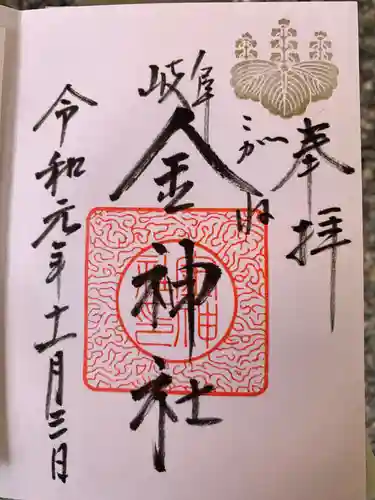 奉拝
こがね
岐阜
金神社
令和元年十一月三日